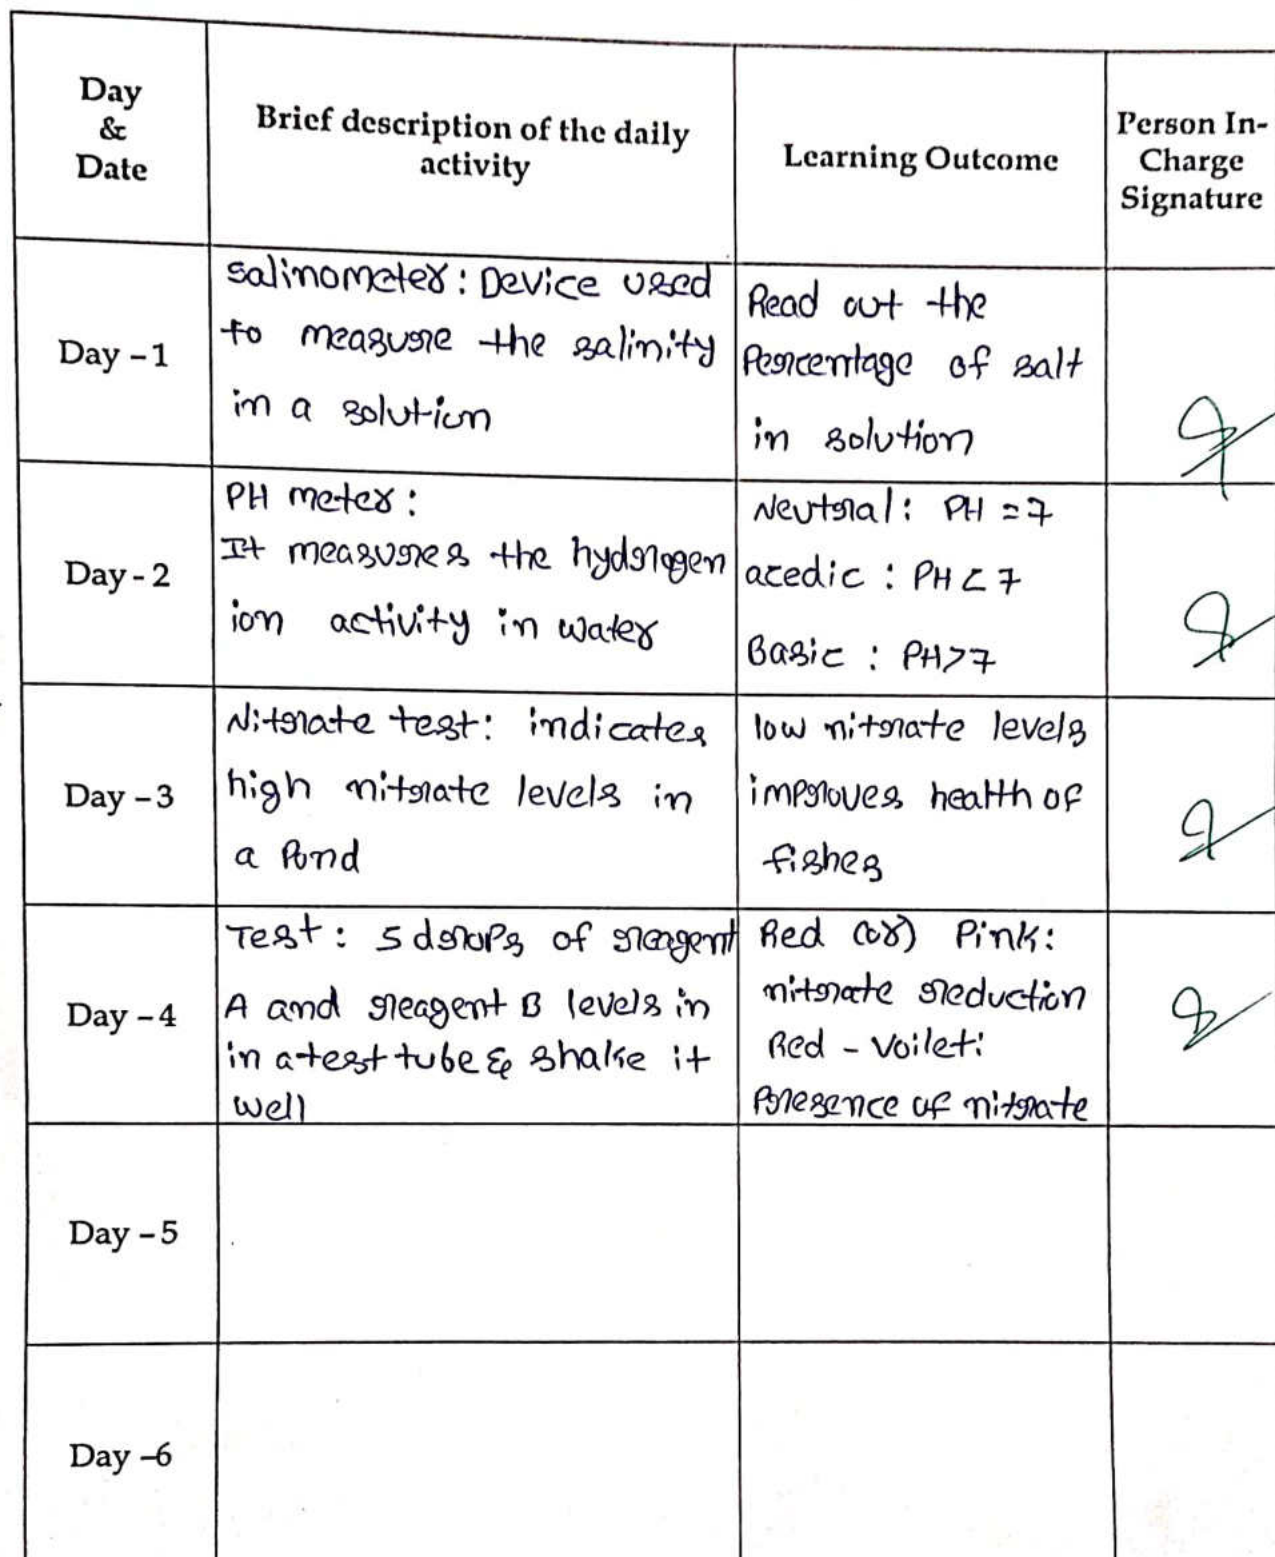 Day
&
Date
Brief description of the daily
activity
Learning Outcome
Person In-
Charge
Signature
Day - 1
salinometer : Device used
to measure the salinity
in a solution
Read out the
Percentage of salt
in solution
Day - 2
PH meter :
It measures the hydrogen
ion activity in water
Neutral : PH = 7
acedic : PH < 7
Basic : PH > 7
Day - 3
Nitrate test : indicates
high nitrate levels in
a Pond
low nitrate levels
improves health of
fishes
Day - 4
Test : 5 drops of reagent
A and reagent B levels in
in a test tube & shake it
well
Red (or) Pink :
nitrate reduction
Red - Voilet :
Presence of nitrate
Day - 5
Day - 6